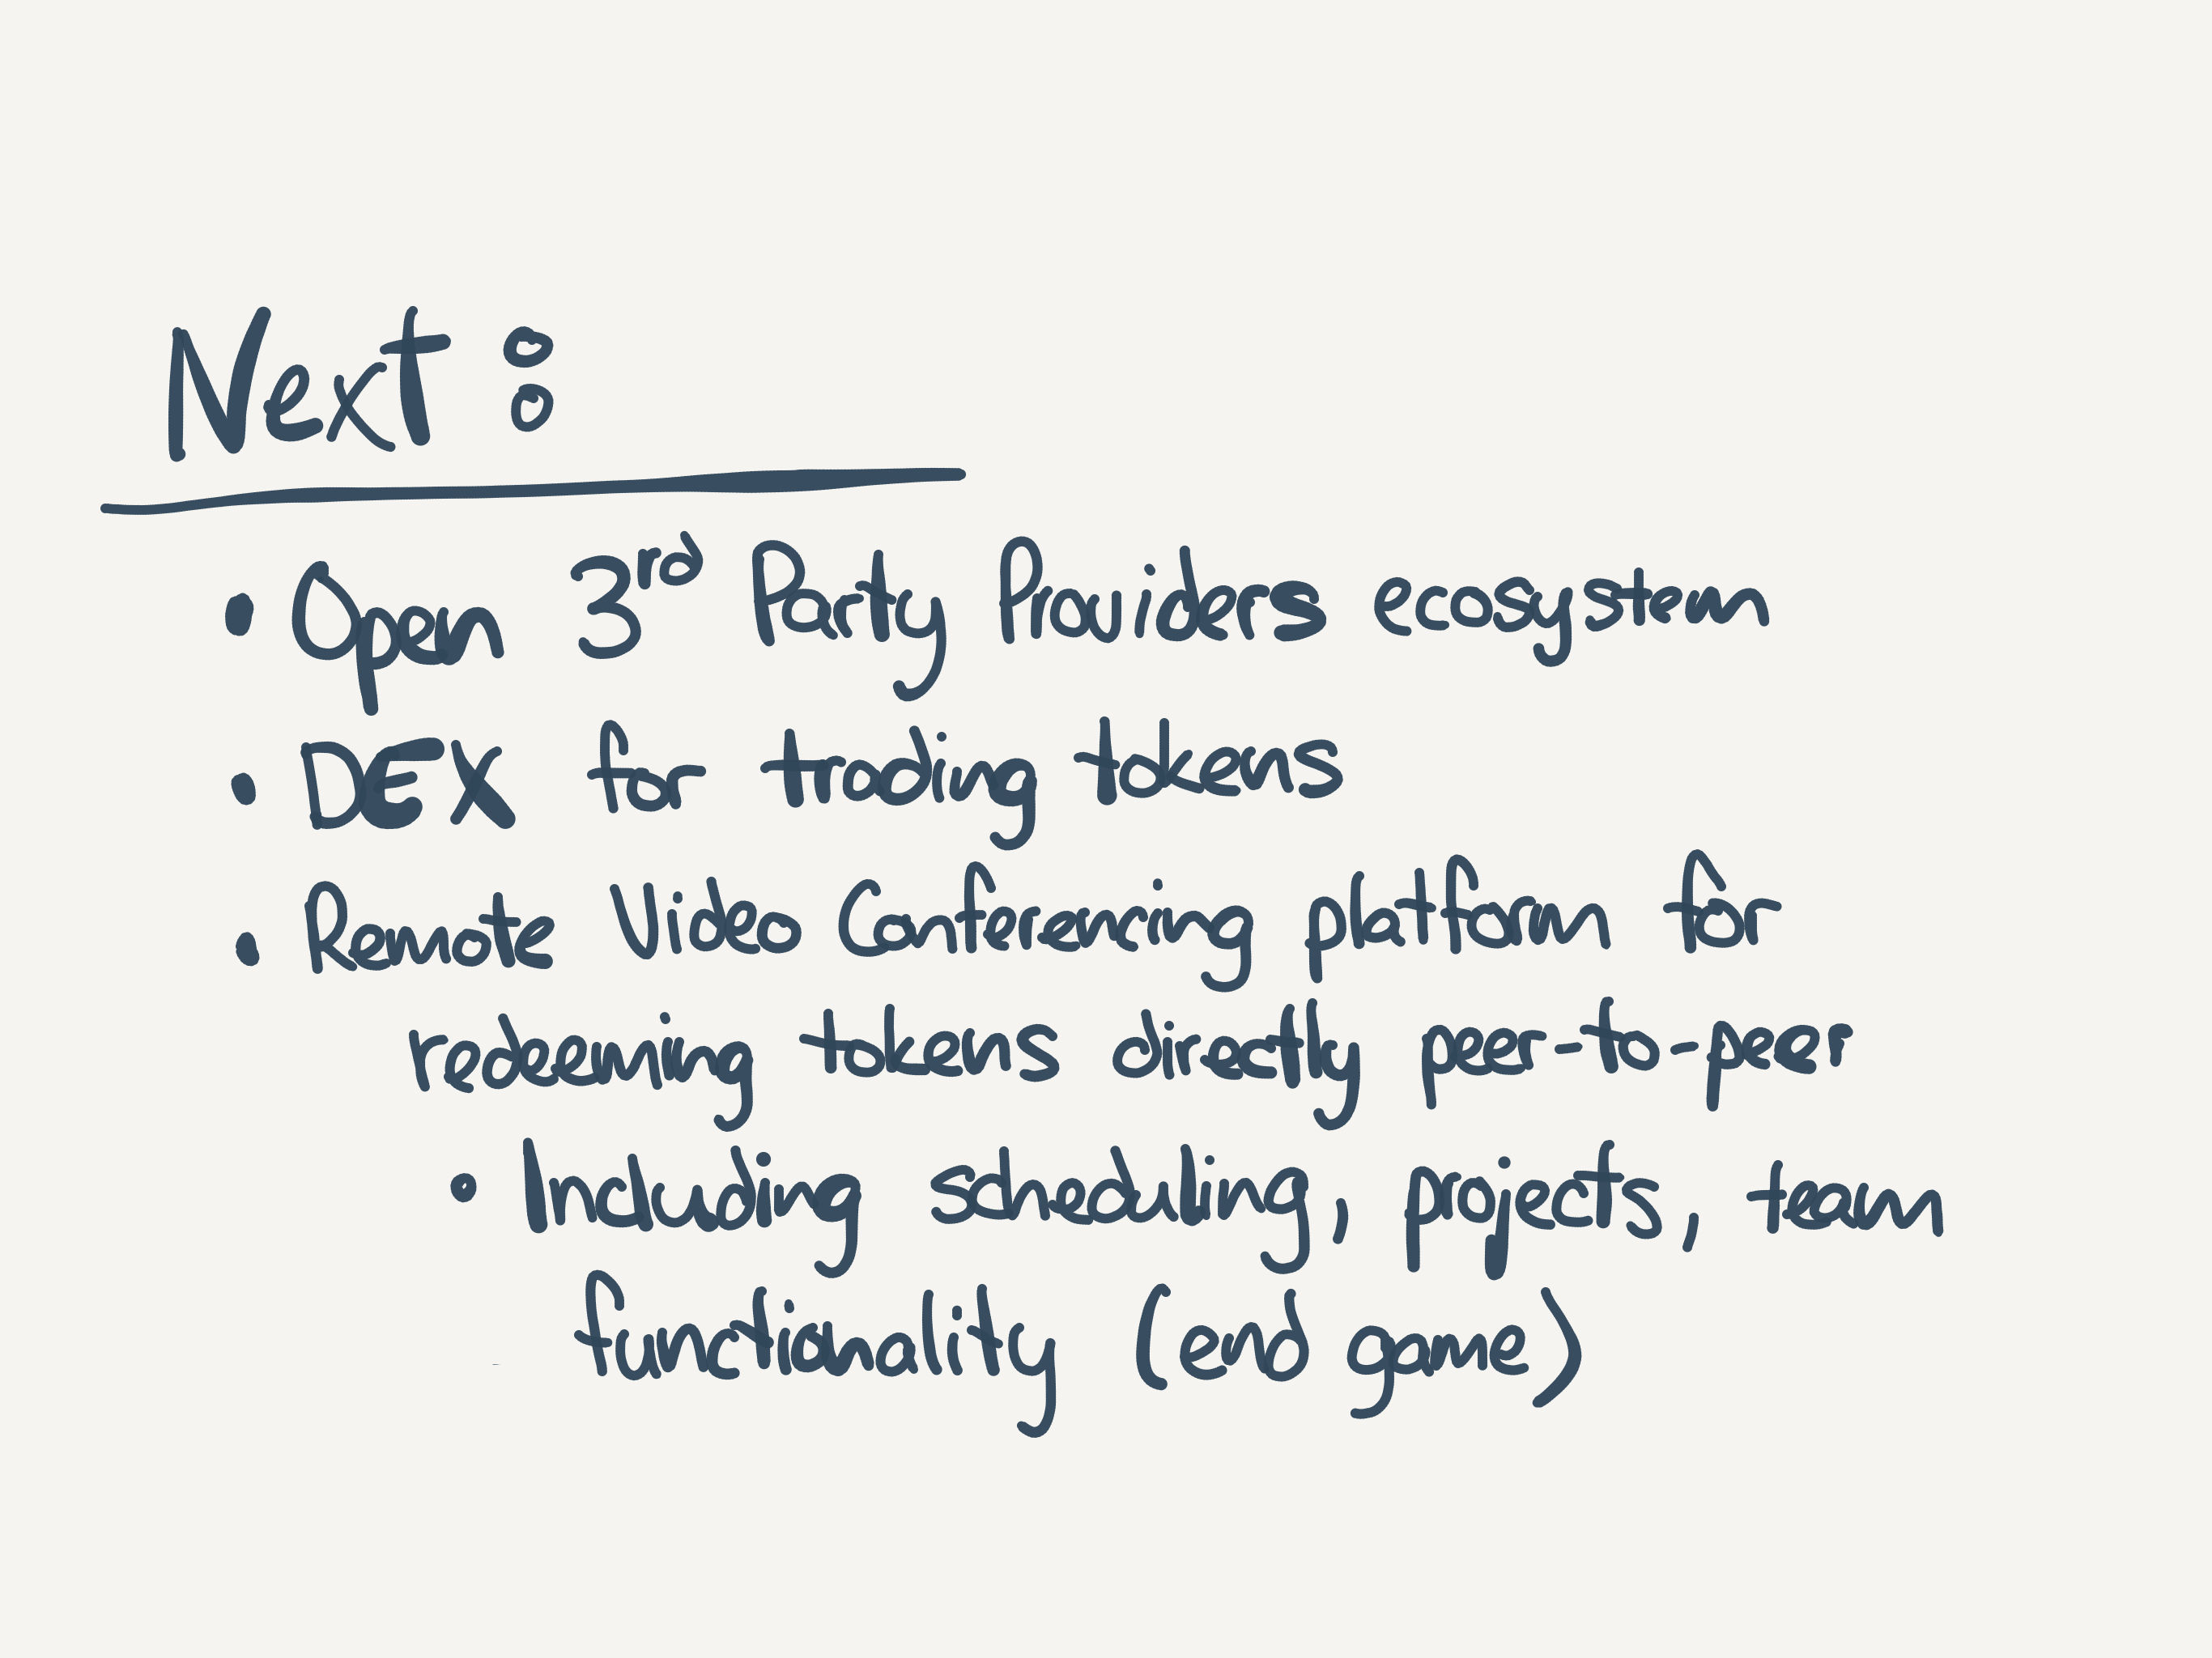 Next:
• Open 3rd Party Providers ecosystem
• DEX for trading tokens
• Remote Video Conferencing platform for
redeeming tokens directly peer-to-peer
• Including scheduling, projects, team
functionality (end game)